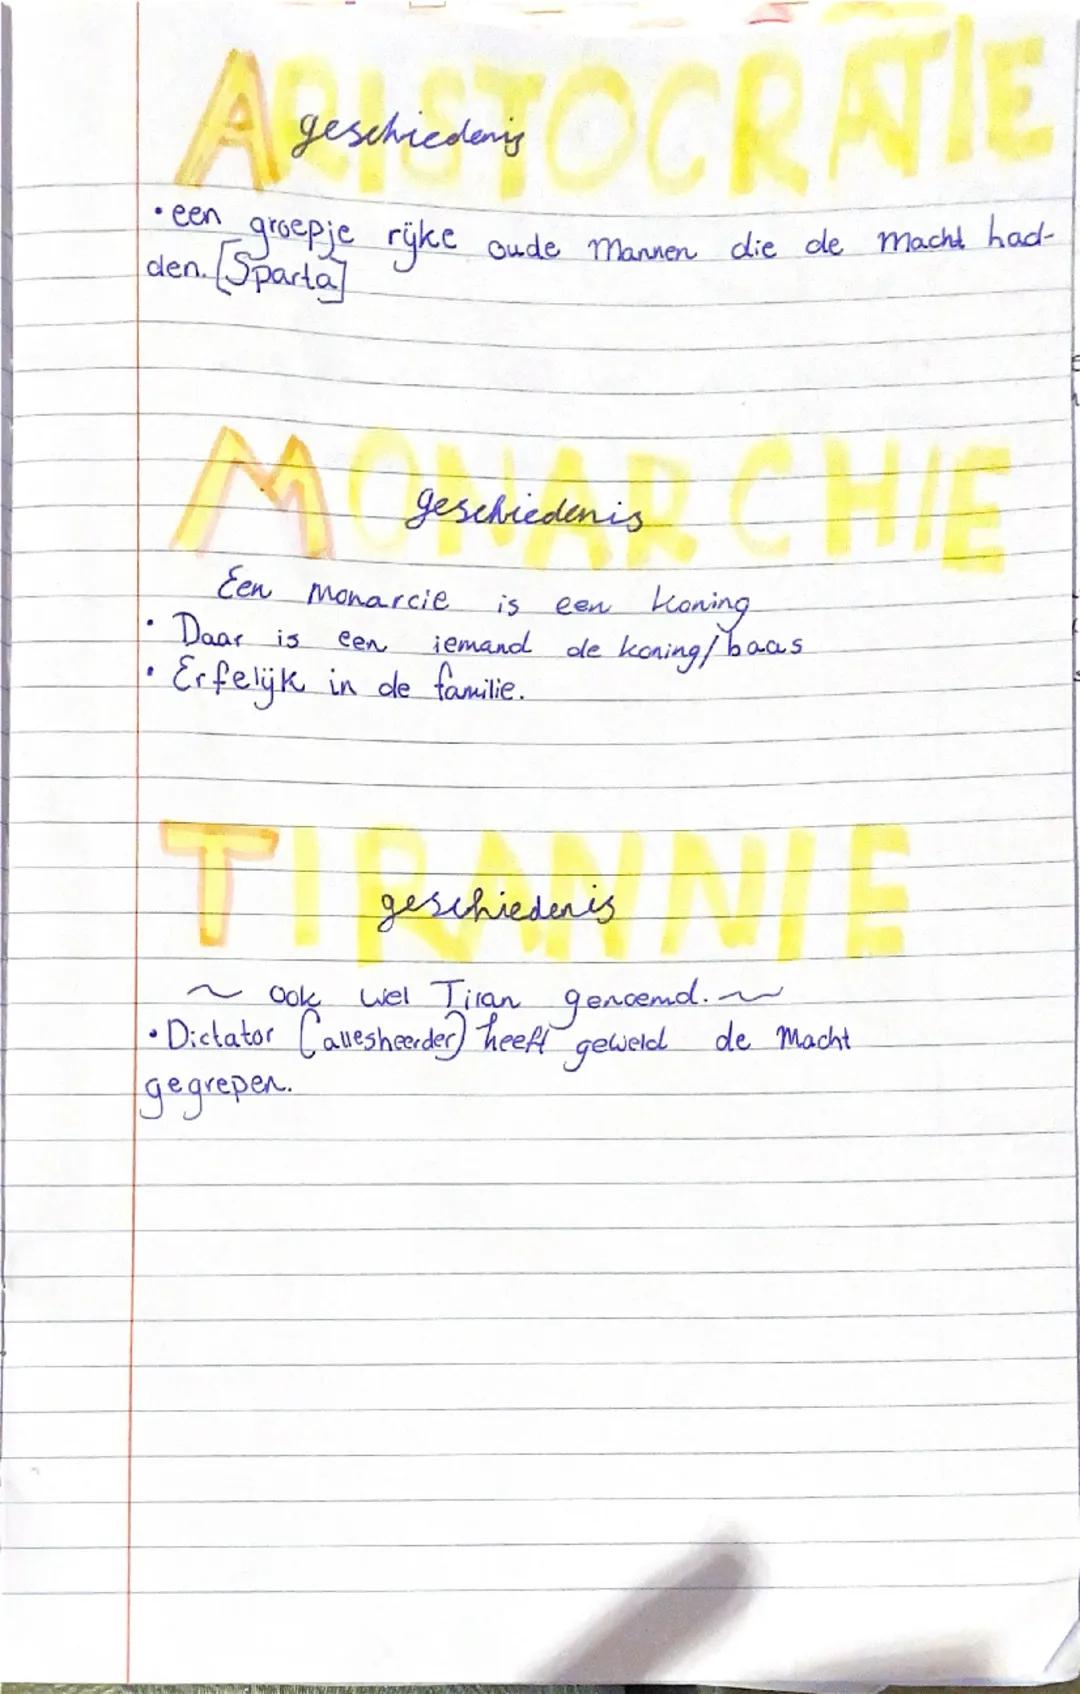 ARISTOCRATIE
geschiedenis
• een groepje rijke oude mannen die de macht had-
den. [Sparta]
MONARCHIE
geschiedenis
Een monarcie is een koning
• Daar is een iemand de koning/baas
• Erfelijk in de familie.
TIRANNIE
geschiedenis
~ Ook wel Tiran genoemd. ~
• Dictator (allesheerder) heeft geweld de macht
gegrepen.